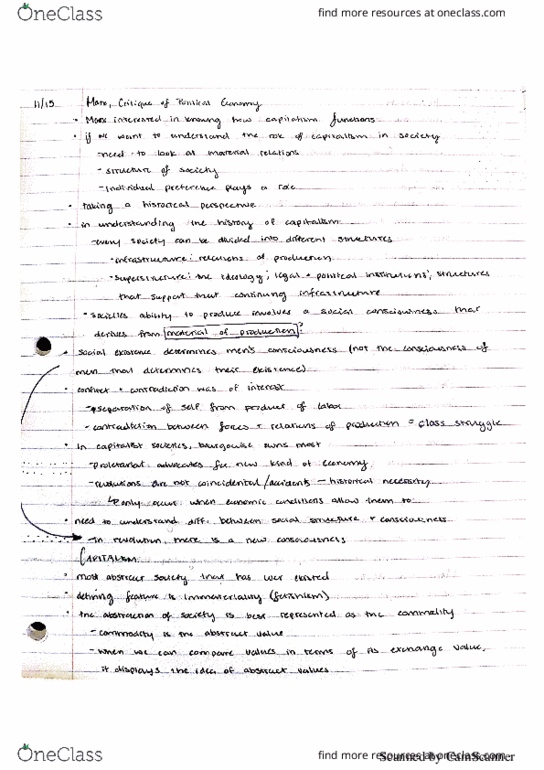 OneClass
find more resources at oneclass.com
11/15 Marx, Critique of Political Economy
• Marx interested in knowing how capitalism functions
• if we want to understand the role of capitalism in society
-need to look at material relations
- structure of society
-individual preference plays a role
• taking a historical perspective
• in understanding the history of capitalism
-every society can be divided into different structures
•infrastructure: relations of production
•superstructure: the ideology; legal + political institutions; structures
that support that continuing infrastructure
• societies ability to produce involves a social consciousness that
derives from material of production?
• social existence determines men's consciousness (not the consciousness of
men that determines their existence)
• conflict + contradiction was of interest
-separation of self from product of labor
-contradiction between forces + relations of production = class struggle
• in capitalist societies, bourgeoisie owns most
-proletariat advocates for new kind of economy
-revolutions are not coincidental/accidents – historical necessity
↳ only occur when economic conditions allow them to
• need to understand diff. between social structure + consciousness
-in revolution, there is a new consciousness
CAPITALISM
• most abstract society that has ever existed
• defining feature is immateriality (fetishism)
• the abstraction of society is best represented as the commodity
-commodity is the abstract value
-when we can compare values in terms of its exchange value,
it displays the idea of abstract values
OneClass
find more resources at oneclass.com
Scanned by CamScanner